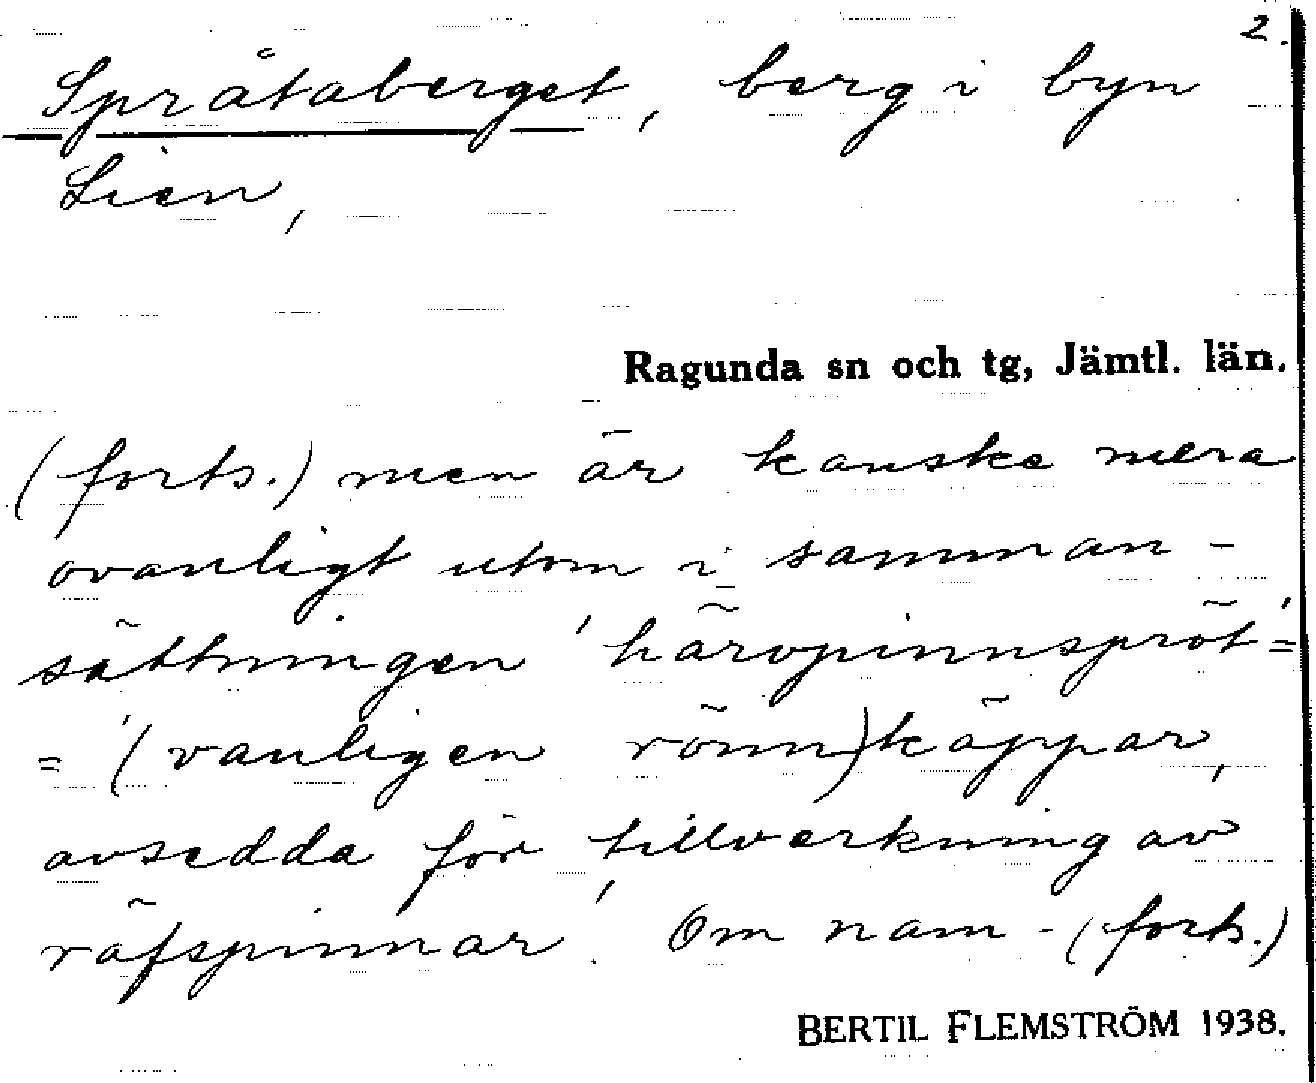 2.
Språtaberget, berg i byn
Lien,
Ragunda sn och tg, Jämtl. län.
(forts.) men är kanske mera
ovanligt utom i samman-
sättningen 'härvpinnspröt'=
= '(vanligen rönn)käppar,
avsedda för tillverkning av
räfspinnar'. Om nam- (forts.)
BERTIL FLEMSTRÖM 1938.